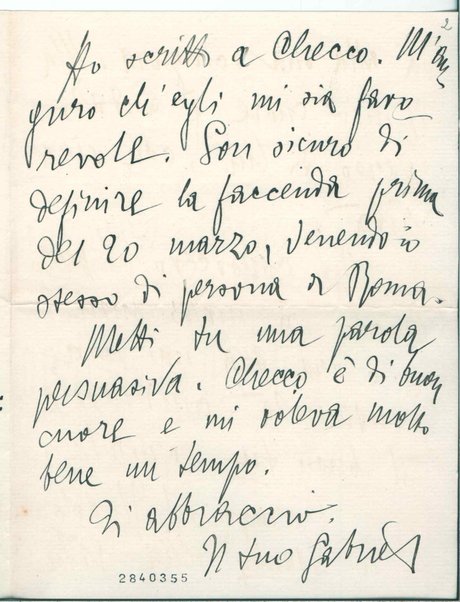 2
Ho scritto a Checco. M'au
guro ch'egli mi sia favo
revole. Son sicuro di
definire la faccenda prima
del 20 marzo, venendo io
stesso di persona a Roma.
Metti tu una parola
persuasiva. Checco è di buon
cuore e mi voleva molto
bene un tempo.
Ti abbraccio.
Il tuo Gabriel
2840355